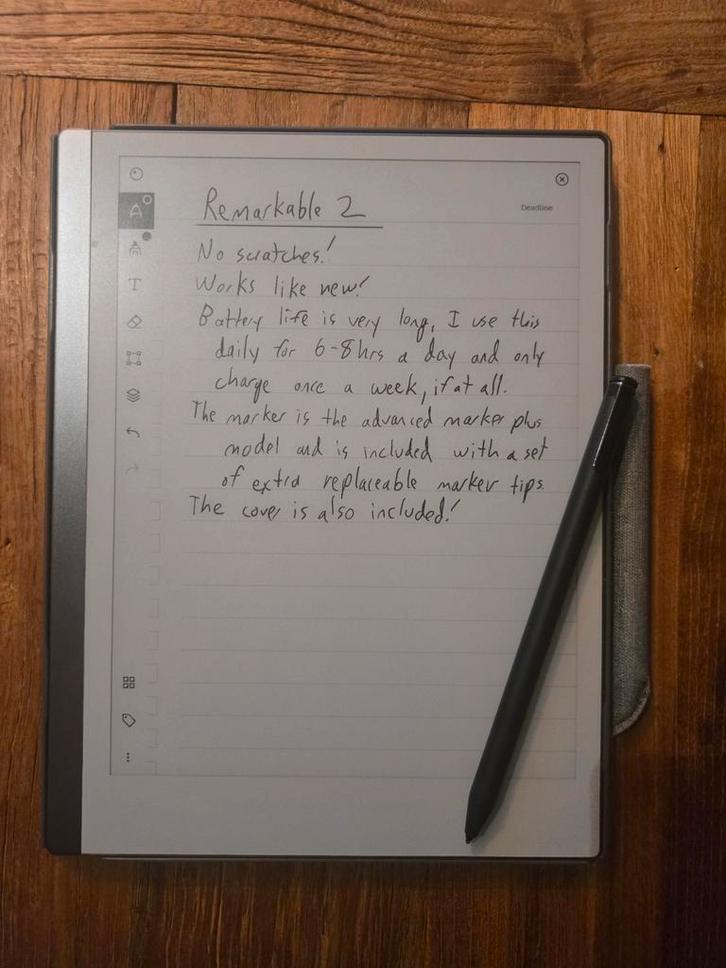 Remarkable 2
Deadline
No scratches!
Works like new!
Battery life is very long, I use this
daily for 6-8hrs a day and only
charge once a week, if at all.
The marker is the advanced marker plus
model and is included with a set
of extra replaceable marker tips.
The cover is also included!